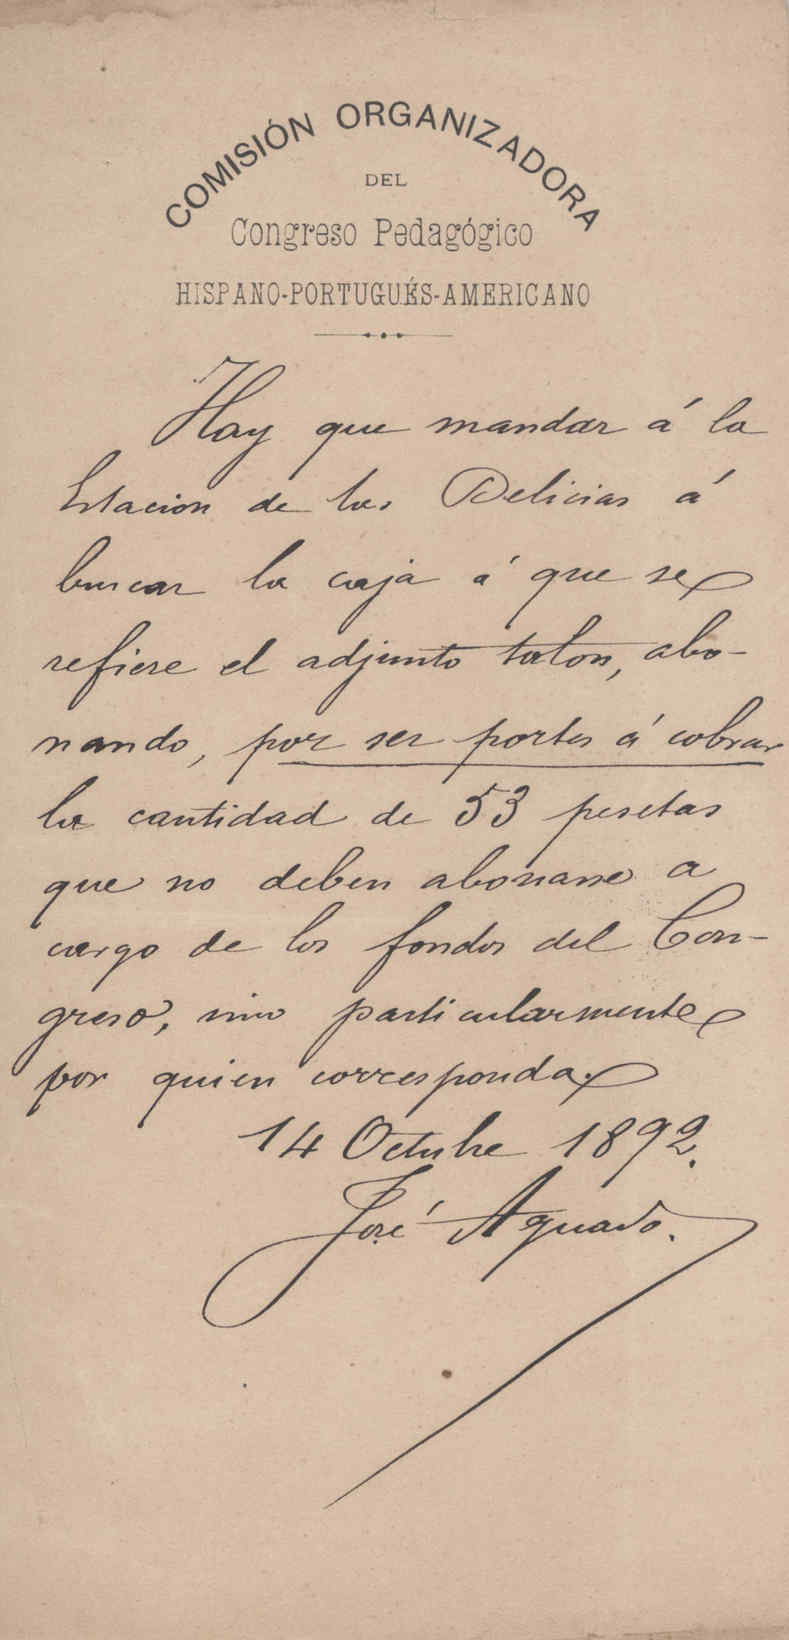 COMISIÓN ORGANIZADORA
DEL
Congreso Pedagógico
HISPANO-PORTUGUÉS-AMERICANO
Hay que mandar á la
Estacion de las Delicias á
buscar la caja á que se
refiere el adjunto talon, abo-
nando, por ser portes á cobrar
la cantidad de 53 pesetas
que no deben abonarse a
cargo de los fondos del Con-
greso, sino particularmente
por quien corresponda.
14 Octubre 1892.
José Aguado.